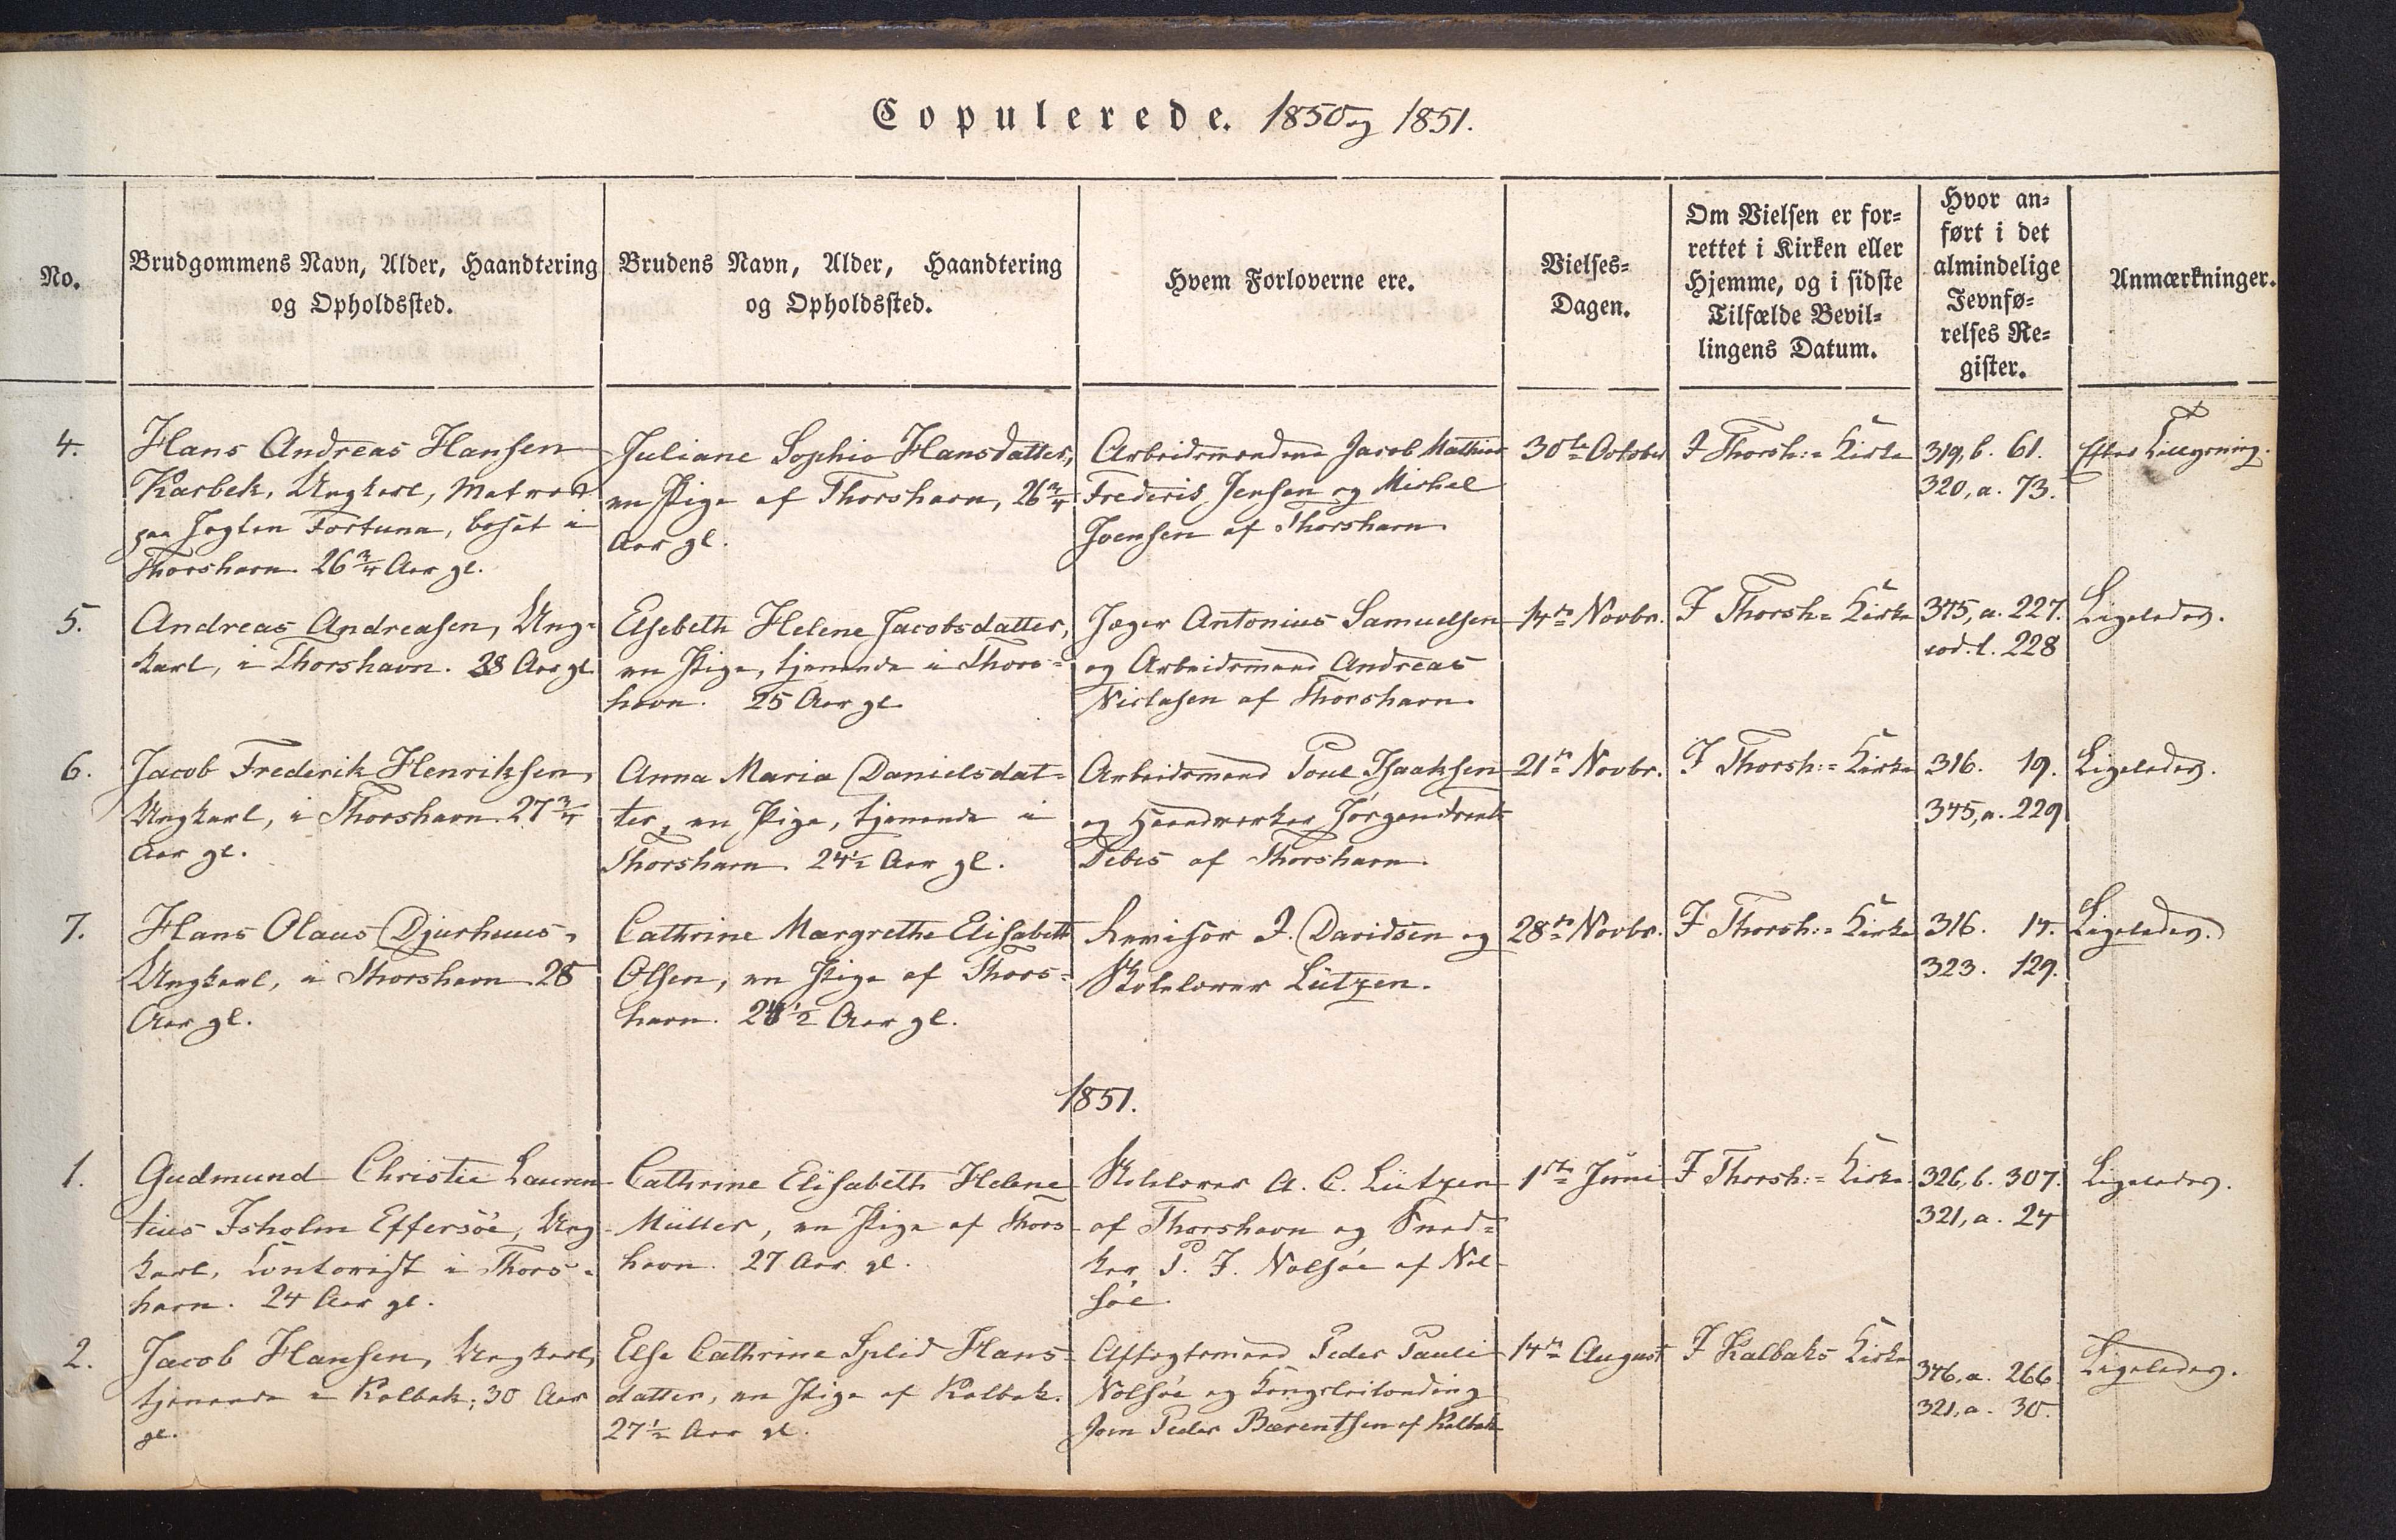 Copulerede. 1850 og 1851.
No.
Brudgommens Navn, Alder, Haandtering
og Opholdssted.
Brudens Navn, Alder, Haandtering
og Opholdssted.
Hvem Forloverne ere.
Vielses-
Dagen.
Om Vielsen er for-
rettet i Kirken eller
Hjemme, og i sidste
Tilfælde Bevil-
lingens Datum.
Hvor an-
ført i det
almindelige
Jevnfø-
relses Re-
gister.
Anmærkninger.
4.
Hans Andreas Hansen
Karbek, Ungkarl, Matros
paa Jagten Fortuna, bosat i
Thorshavn 26 3/4 Aar gl.
Juliane Sophie Hansdatter,
en Pige af Thorshavn, 26 3/4
Aar gl.
Arbeidsmændene Jacob Mathias
Frederik Jensen og Michel
Joensen af Thorshavn
30te October
I Thorsh:= Kirke
319, b. 61.
320, a. 73.
Efter Tillysning.
5.
Andreas Andreasen, Ung-
karl, i Thorshavn. 28 Aar gl.
Elsebeth Helene Jacobsdatter,
en Pige, tjenende i Thors=
havn. 25 Aar gl.
Jæger Antonius Samuelsen
og Arbeidsmand Andreas
Niclasen af Thorshavn.
14de Novbr.
I Thorsh:= Kirke
345, a. 227.
eod. l. 228
Ligeledes.
6.
Jacob Frederik Henriksen,
Ungkarl, i Thorshavn. 27 3/4
Aar gl.
Anna Maria Danielsdat=
ter, en Pige, tjenende i
Thorshavn. 24 1/2 Aar gl.
Arbeidsmand Poul Isaaksen
og Haandværker Jørgen Frants
Debes af Thorshavn.
21de Novbr.
I Thorsh:= Kirke
316. 19.
345, a. 229
Ligeledes.
7.
Hans Olaus Djurhuus,
Ungkarl, i Thorshavn 28
Aar gl.
Cathrine Margrethe Elisabeth
Olsen, en Pige af Thors=
havn. 24 1/2 Aar gl.
Revisor J. Davidsen og
Skolelærer Lützen.
28de Novbr.
I Thorsh:= Kirke
316. 14.
323. 129.
Ligeledes.
1851.
1.
Gudmund Christie Lauren
tius Isholm Effersöe, Ung
karl, Contorist i Thors=
havn. 24 Aar gl.
Cathrine Elisabeth Helene
Müller, en Pige af Thors
havn. 27 Aar gl.
Skolelærer A. C. Lützen
af Thorshavn og Sned=
ker P. F. Nolsöe af Nol
söe
1ste Juni
I Thorsh:= Kirke
326, b. 307.
321, a. 24
Ligeledes.
2.
Jacob Hansen, Ungkarl,
tjenende i Kalbak; 30 Aar
gl.
Else Cathrine Splid Hans-
datter, en Pige af Kalbak.
27 1/2 Aar gl.
Aftægtsmand Peder Pauli
Nolsöe og Kongsleilænding
Joen Peder Bærentsen af Kalbak
14de August
I Kalbaks Kirke
346, a. 266.
321, a. 30.
Ligeledes.